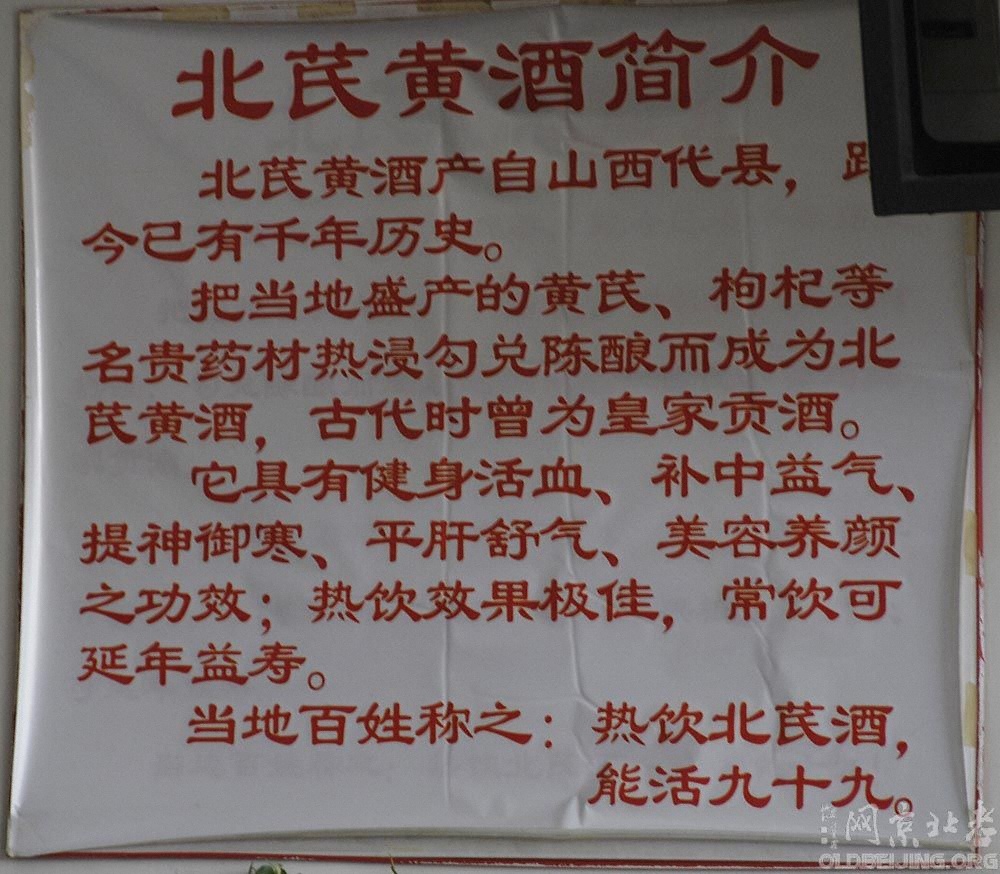 北芪黄酒简介
北芪黄酒产自山西代县，
今已有千年历史。
把当地盛产的黄芪、枸杞等
名贵药材热浸勾兑陈酿而成为北
芪黄酒，古代时曾为皇家贡酒。
它具有健身活血、补中益气、
提神御寒、平肝舒气、美容养颜
之功效；热饮效果极佳，常饮可
延年益寿。
当地百姓称之：热饮北芪酒，
能活九十九。
网京北老
OLDBEIJING.ORG